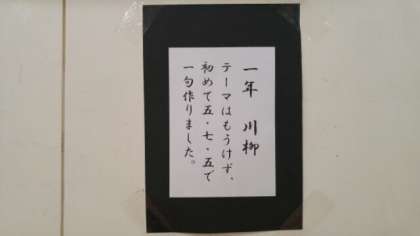 一年　川柳
テーマはもうけず、
初めて五・七・五で
一句作りました。